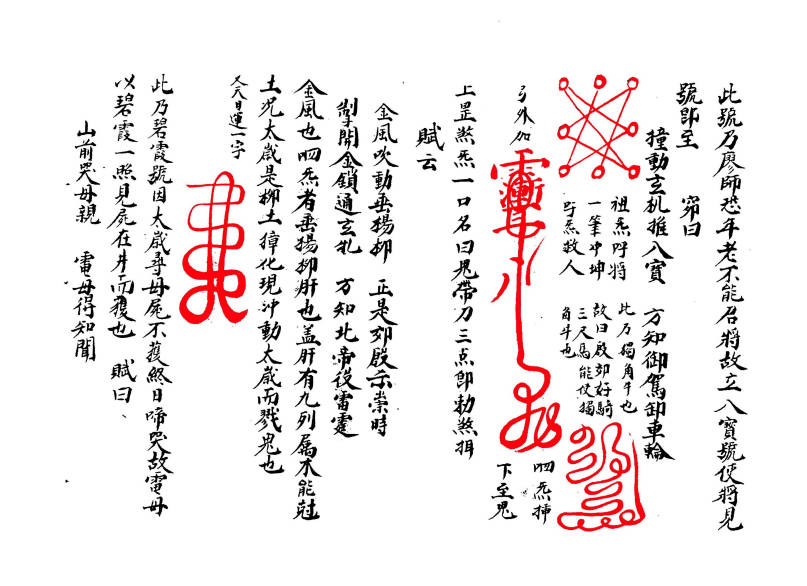 此號乃廖師恐年老不能召將故立八寳號使將見
號即至
訣曰
撞動玄机推八寳 方知御駕卸車輪
祖炁吁將
一筆冲坤
吁炁救人
此乃獨角牛也
故曰殷郊好騎
三尺馬能使獨
角牛也
另外加
呬炁挿
下至鬼
上罡煞炁一口名曰鬼帶刀三点即勅煞
賦云
金風吹動垂揚栁 正是郊殷示崇時
掣開金鎖通玄牝 方知北帝役雷霆
金風也呬炁者垂揚栁肝也盖肝有九列属木能尅
土咒太歲是栁土獐化現冲動太歲而戮鬼也
又六日運一字
此乃碧霞號因太歲尋母屍不獲終日啼哭故電母
以碧霞一照見屍在井而獲也 賦曰、
山前哭母親 電母得知聞